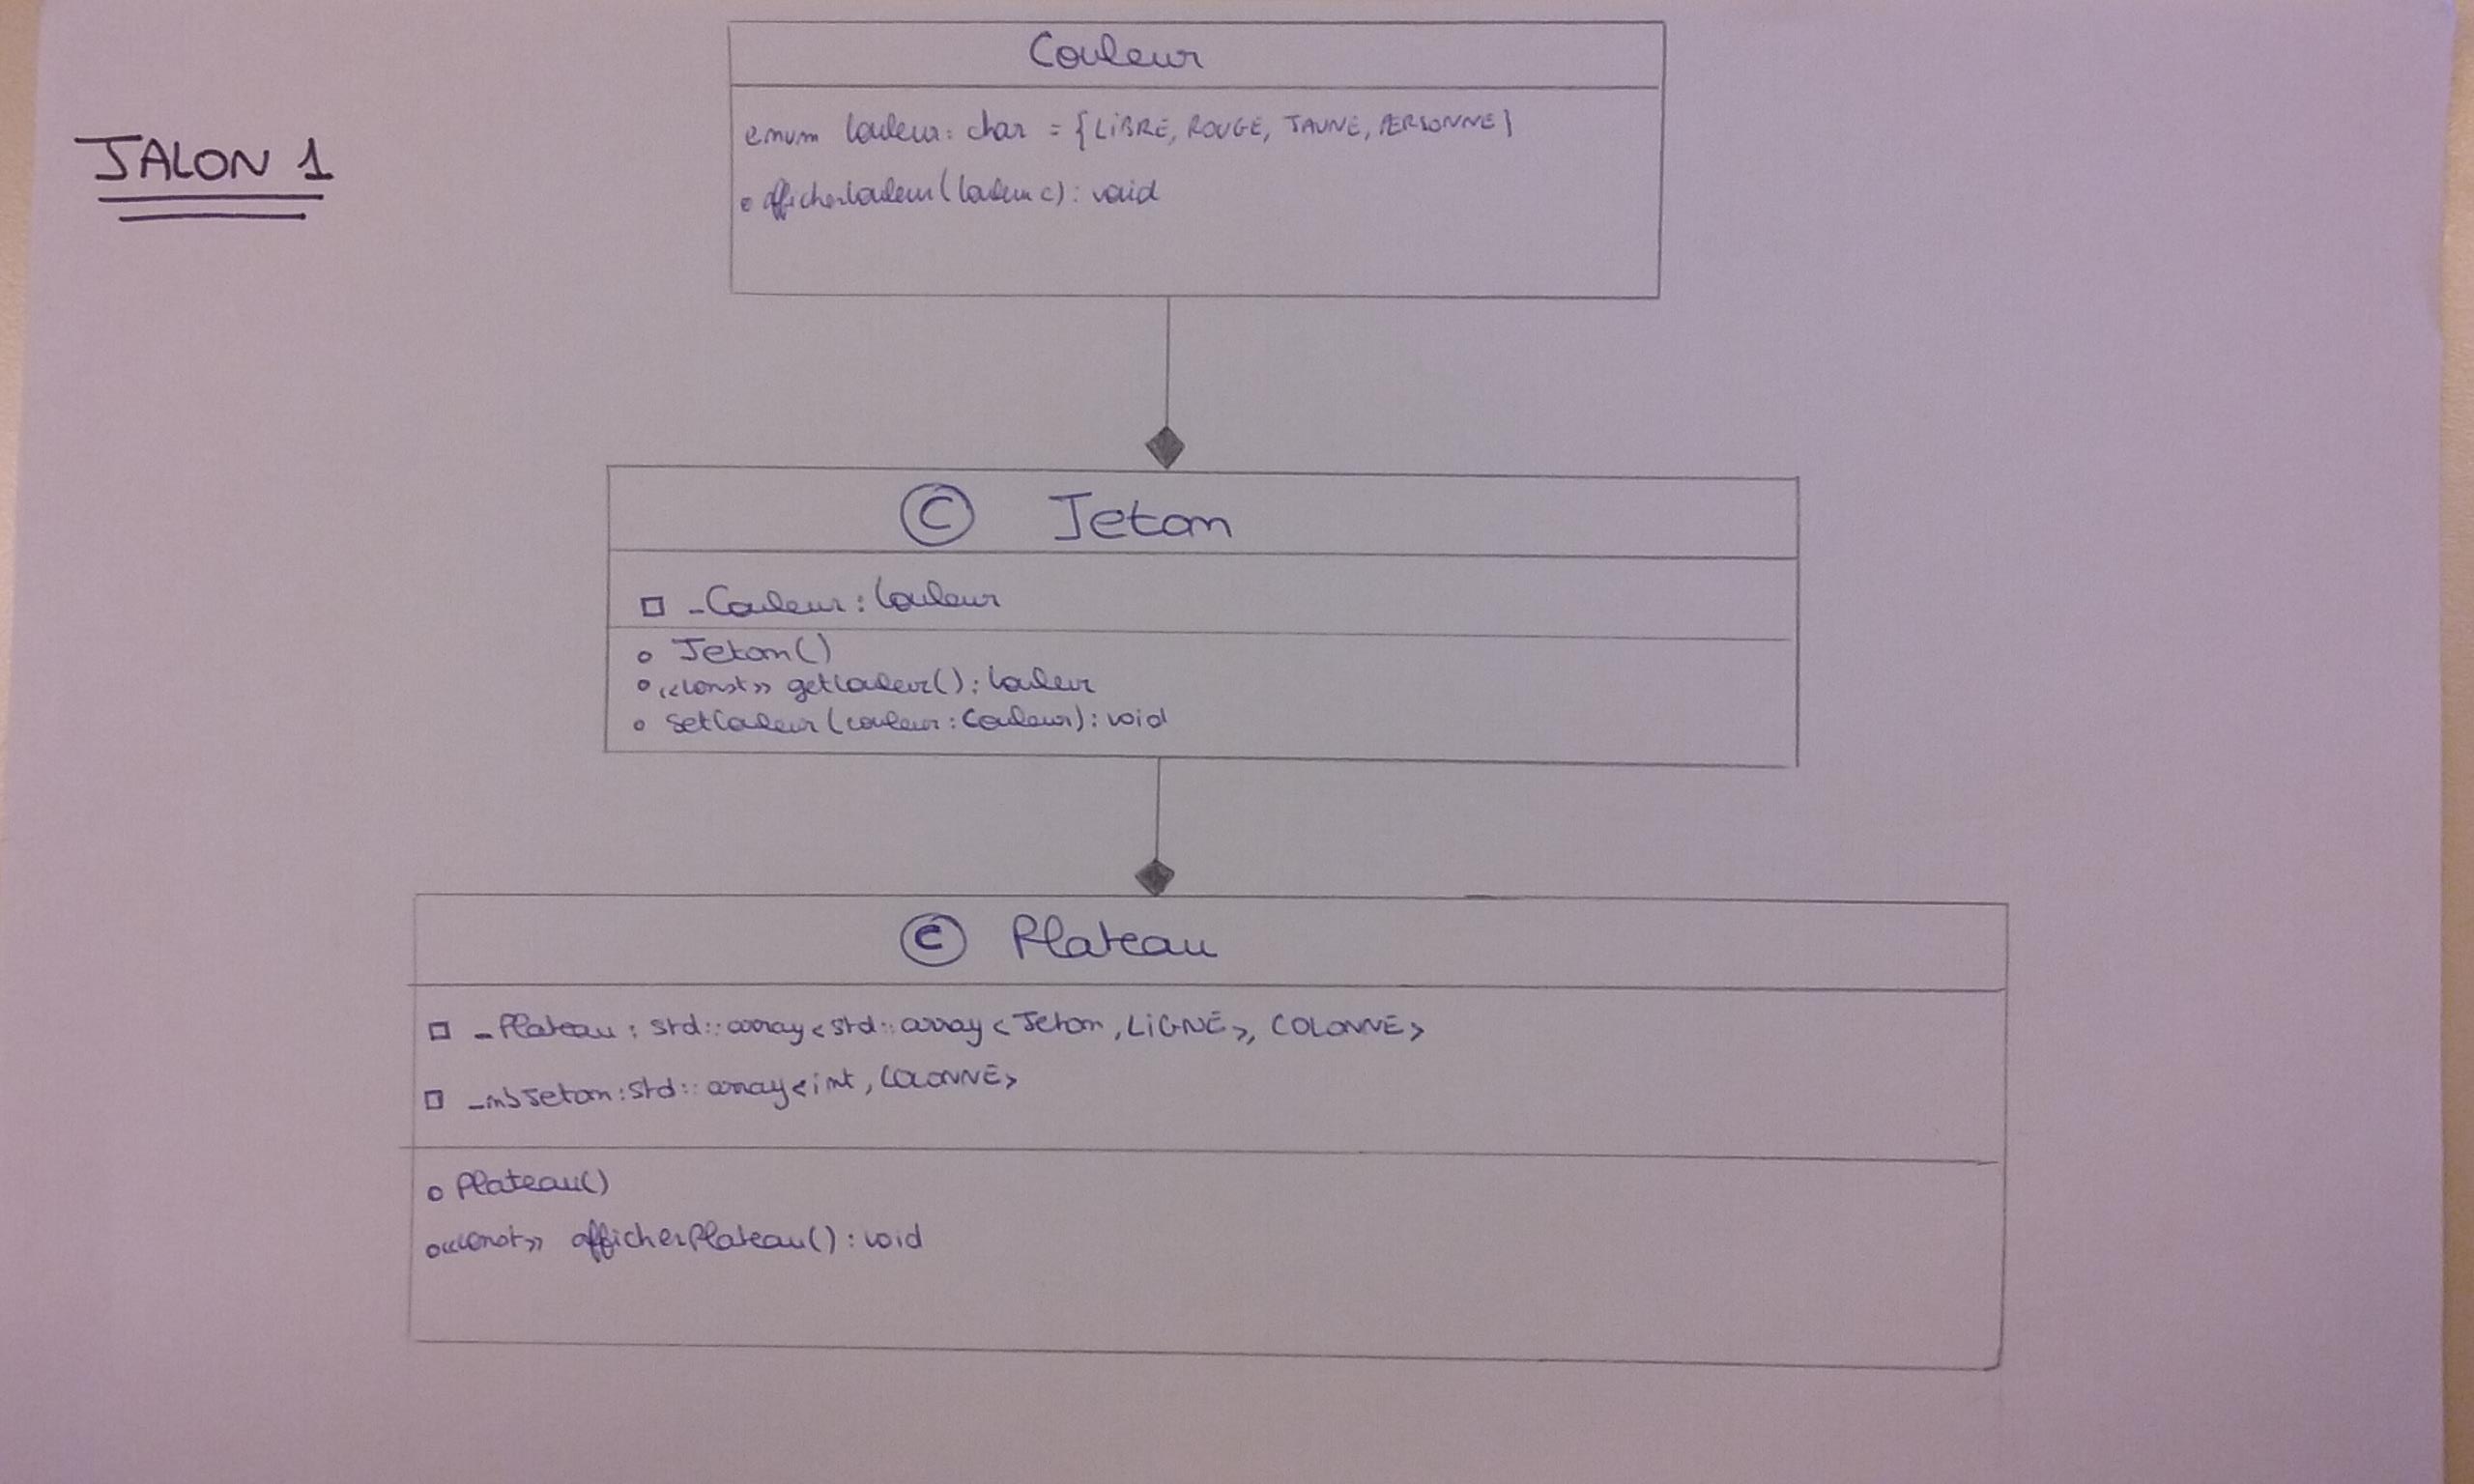 JALON 1
Couleur
enum Couleur: char = {LIBRE, ROUGE, JAUNE, PERSONNE}
afficherCouleur(Couleur c): void
C Jeton
_Couleur: Couleur
Jeton()
<<const>> getCouleur(): Couleur
setCouleur(couleur: Couleur): void
C Plateau
_Plateau: std::array<std::array<Jeton, LIGNE>, COLONNE>
_nbJeton: std::array<int, COLONNE>
Plateau()
<<const>> afficherPlateau(): void